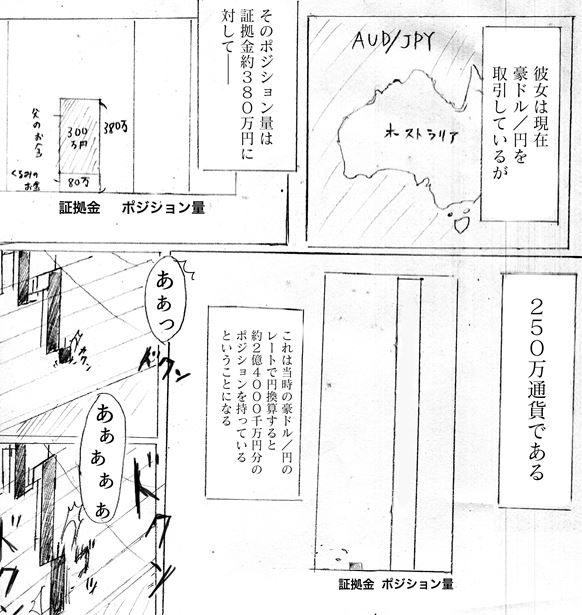 彼女は現在
豪ドル/円を
取引しているが
AUD/JPY
オーストラリア
そのポジション量は
証拠金約380万円に
対して――
380万
300
万円
80万
父のお金
くるみの
お金
証拠金 ポジション量
250万通貨である
これは当時の豪ドル/円の
レートで円換算すると
約2億4000千万円分の
ポジションを持っている
ということになる
証拠金 ポジション量
ああっ
ガクン
ドクン
あぁぁぁぁ
ドクン
ドクン